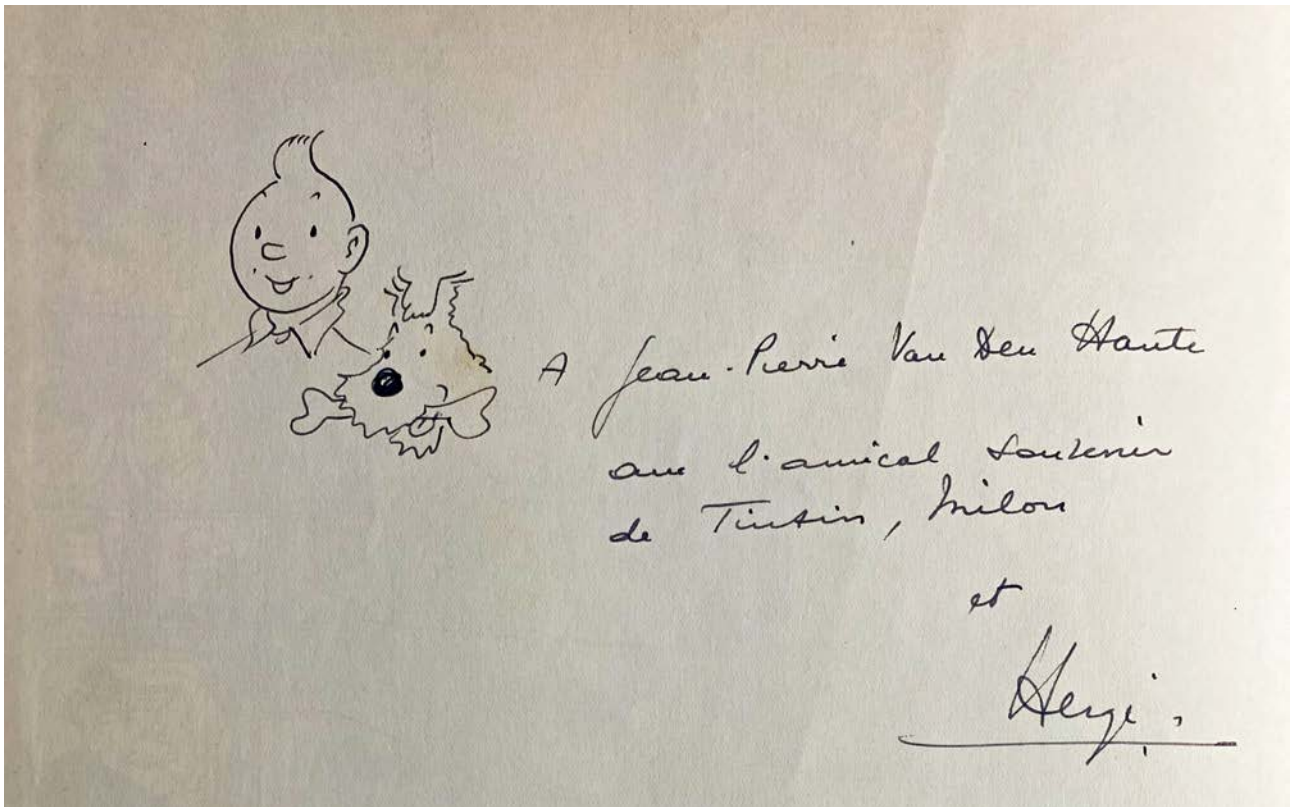 A Jean-Pierre Van Den Haute
avec l'amical souvenir
de Tintin, Milou
et
Hergé.